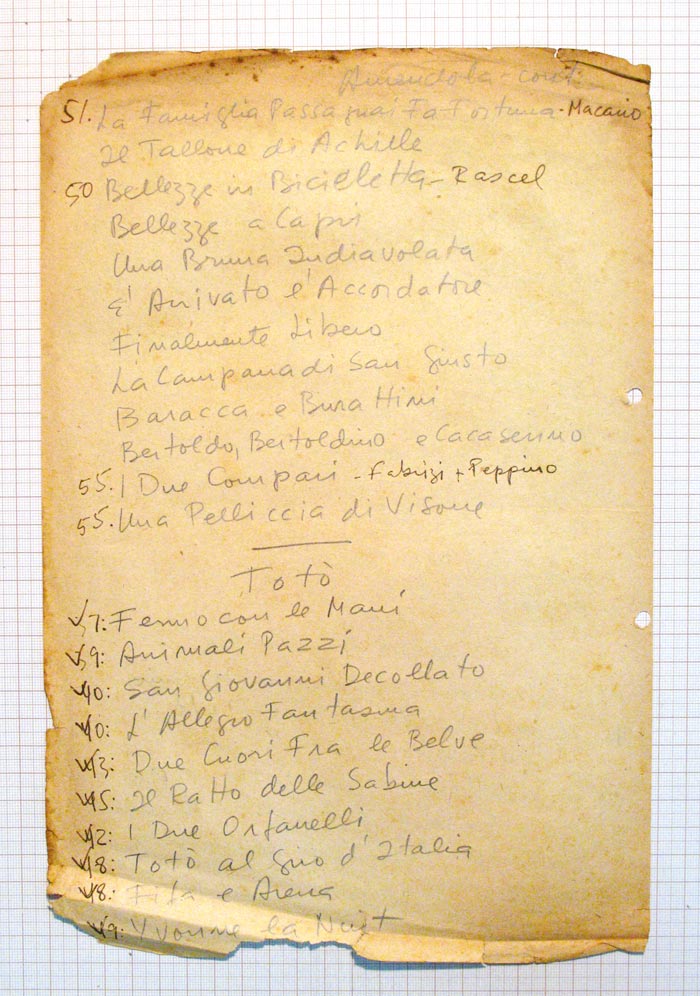 Amendola - cont.
51. La Famiglia Passaguai Fa Fortuna - Macario
Il Tallone di Achille
50 Bellezze in Bicicletta - Rascel
Bellezze a Capri
Una Bruna Indiavolata
E' Arrivato l'Accordatore
Finalmente Libero
La Campana di San Giusto
Baracca e Burattini
Bertoldo, Bertoldino e Cacasenno
55. I Due Compari - Fabrizi + Peppino
55. Una Pelliccia di Visone
Totò
37: Fermo con le Mani
39: Animali Pazzi
40: San Giovanni Decollato
40: L'Allegro Fantasma
43: Due Cuori Fra le Belve
45: Il Ratto delle Sabine
I Due Orfanelli
48: Totò al Giro d'Italia
48: Fifa e Arena
49: Yvonne la Nuit